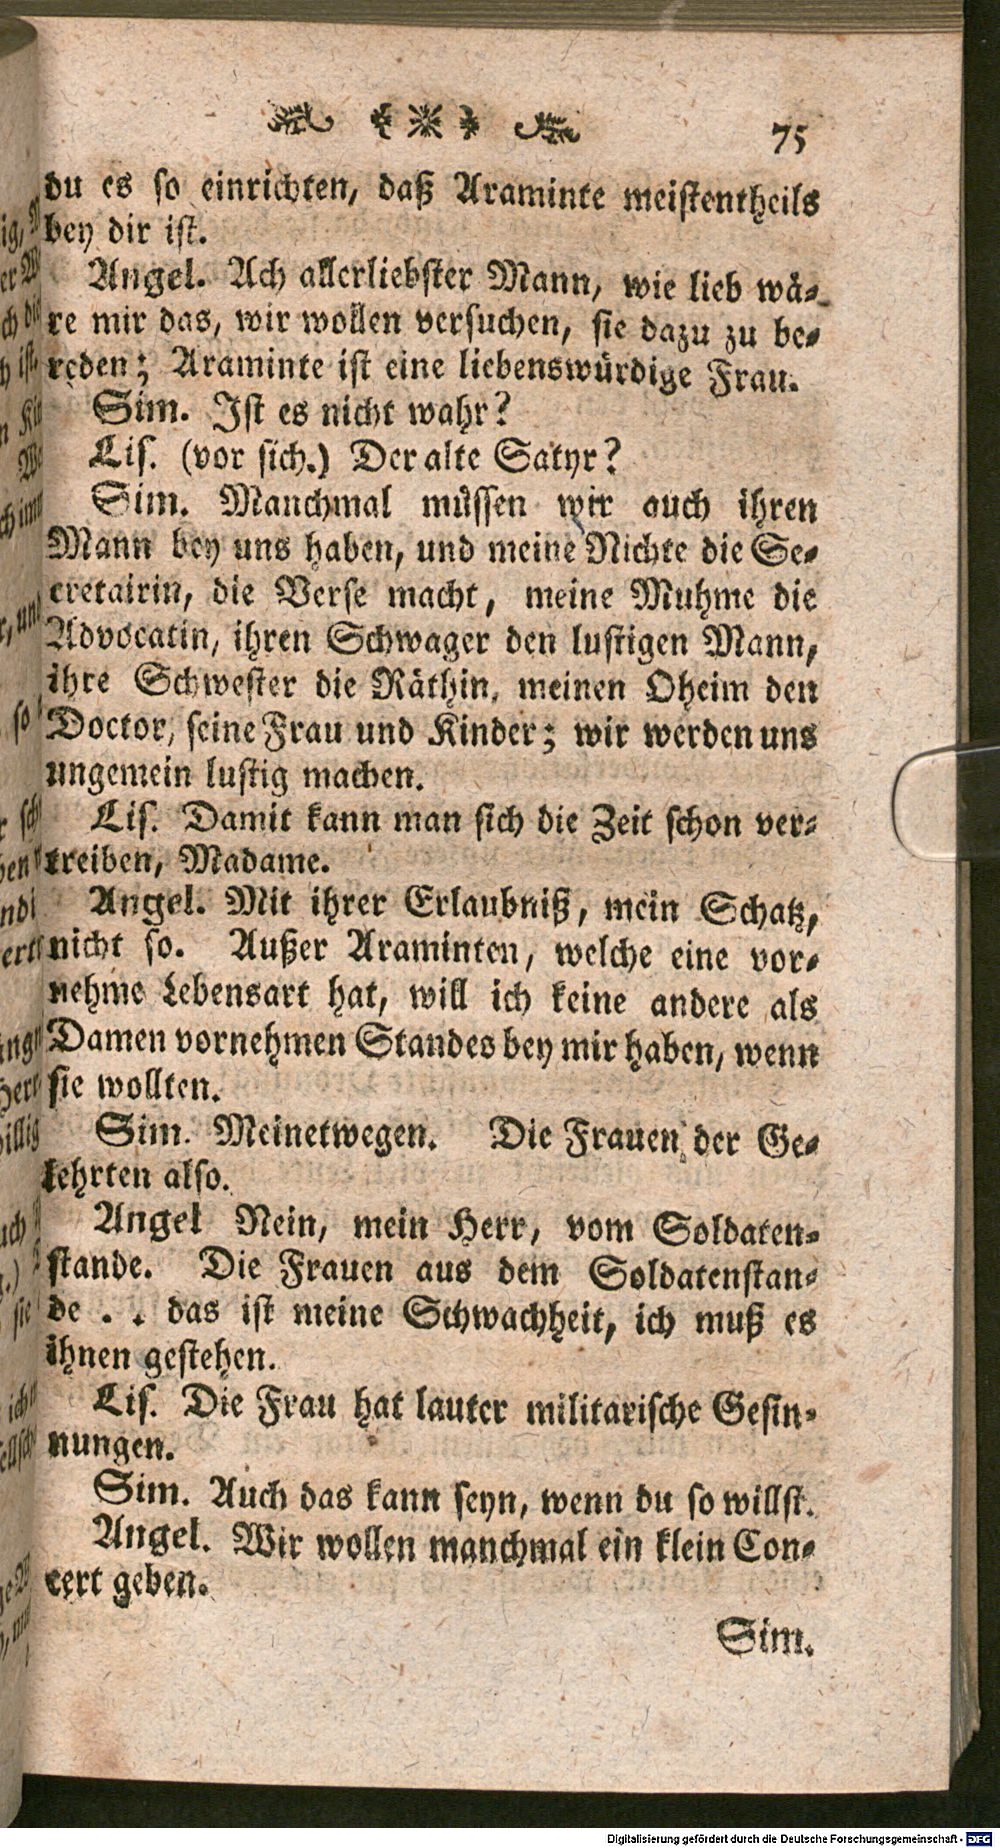 75
du es so einrichten, daß Araminte meistentheils
bey dir ist.
Angel. Ach allerliebster Mann, wie lieb wä-
re mir das, wir wollen versuchen, sie dazu zu be-
reden; Araminte ist eine liebenswürdige Frau.
Sim. Ist es nicht wahr?
Lis. (vor sich.) Der alte Satyr?
Sim. Manchmal müssen wir auch ihren
Mann bey uns haben, und meine Nichte die Se-
cretairin, die Verse macht, meine Muhme die
Advocatin, ihren Schwager den lustigen Mann,
ihre Schwester die Räthin, meinen Oheim den
Doctor, seine Frau und Kinder; wir werden uns
ungemein lustig machen.
Lis. Damit kann man sich die Zeit schon ver-
treiben, Madame.
Angel. Mit ihrer Erlaubniß, mein Schatz,
nicht so. Außer Araminten, welche eine vor-
nehme Lebensart hat, will ich keine andere als
Damen vornehmen Standes bey mir haben, wenn
sie wollten.
Sim. Meinetwegen. Die Frauen der Ge-
lehrten also.
Angel Nein, mein Herr, vom Soldaten-
stande. Die Frauen aus dem Soldatenstan-
de . . das ist meine Schwachheit, ich muß es
ihnen gestehen.
Lis. Die Frau hat lauter militarische Gesin-
nungen.
Sim. Auch das kann seyn, wenn du so willst.
Angel. Wir wollen manchmal ein klein Con-
cert geben.
Sim.
Digitalisierung gefördert durch die Deutsche Forschungsgemeinschaft - DFG